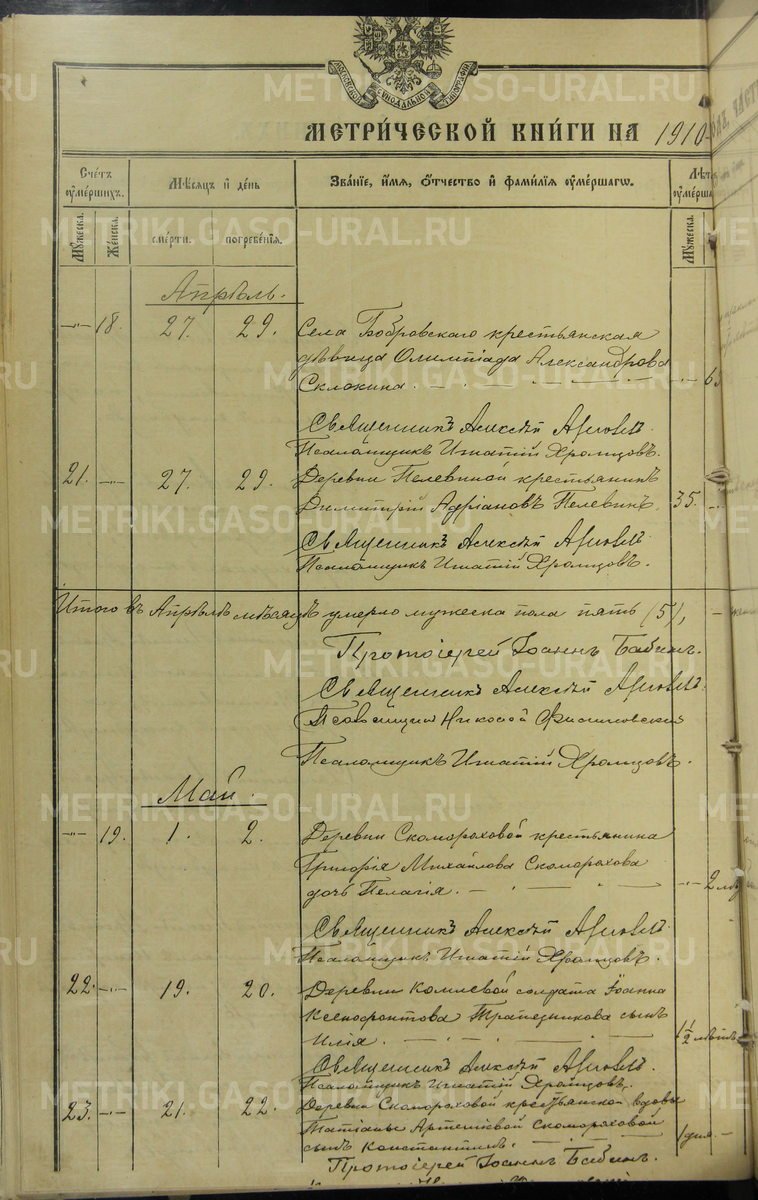 МОСКОВСКОЙ СѴНОДАЛЬНОЙ ТИПОГРАФІИ
МЕТРИ́ЧЕСКОЙ КНИ́ГИ НА 1910
Счетъ ᲂу҆ме́ршихъ. Мѣсяцъ и҆ де́нь Зва́нїе, и҆́мѧ, ѻ҆́тчество и҆ фами́лїѧ ᲂу҆ме́ршагѡ.
Мꙋ́жеска. Же́нска. сме́рти. погребе́нїѧ. Мꙋ́жеска.
Апрѣль.
—„— 18. 27. 29. Села Бобровскаго крестьянская
дѣвица Олимпіада Александрова
Склокина. „— 6
Священникъ Алексѣй
Псаломщикъ Игнатій Храмцовъ.
21. —„— 27. 29. Деревни Пелевиной крестьянинъ
Димитрій Адріановъ Пелевинъ. 35.
Священникъ Алексѣй
Псаломщикъ Игнатій Храмцовъ.
Итого въ Апрѣлѣ мѣсяцѣ умерло мужеска пола пять (5),
Протоіерей Іоаннъ Бабинъ.
Священникъ Алексѣй
Николай
Псаломщикъ Игнатій Храмцовъ.
Май.
—„— 19. 1. 2. Деревни Скомороховой крестьянина
Григорія Михайлова Скоморохова
дочь Пелагія. —„— 2
Священникъ Алексѣй
Псаломщикъ Игнатій Храмцовъ.
22. —„— 19. 20. Деревни солдата Іоанна
Ксенофонтова Трапезникова сынъ
Илія. 1 1/2 лѣтъ
Священникъ Алексѣй
Псаломщикъ Игнатій Храмцовъ.
23. —„— 21. 22. Деревни Скомороховой крестьянской вдовы
Татіаны Артеміевой Скомороховой
сынъ Константинъ. 1 дня
Протоіерей Іоаннъ Бабинъ.
METRIKI.GASO-URAL.RU